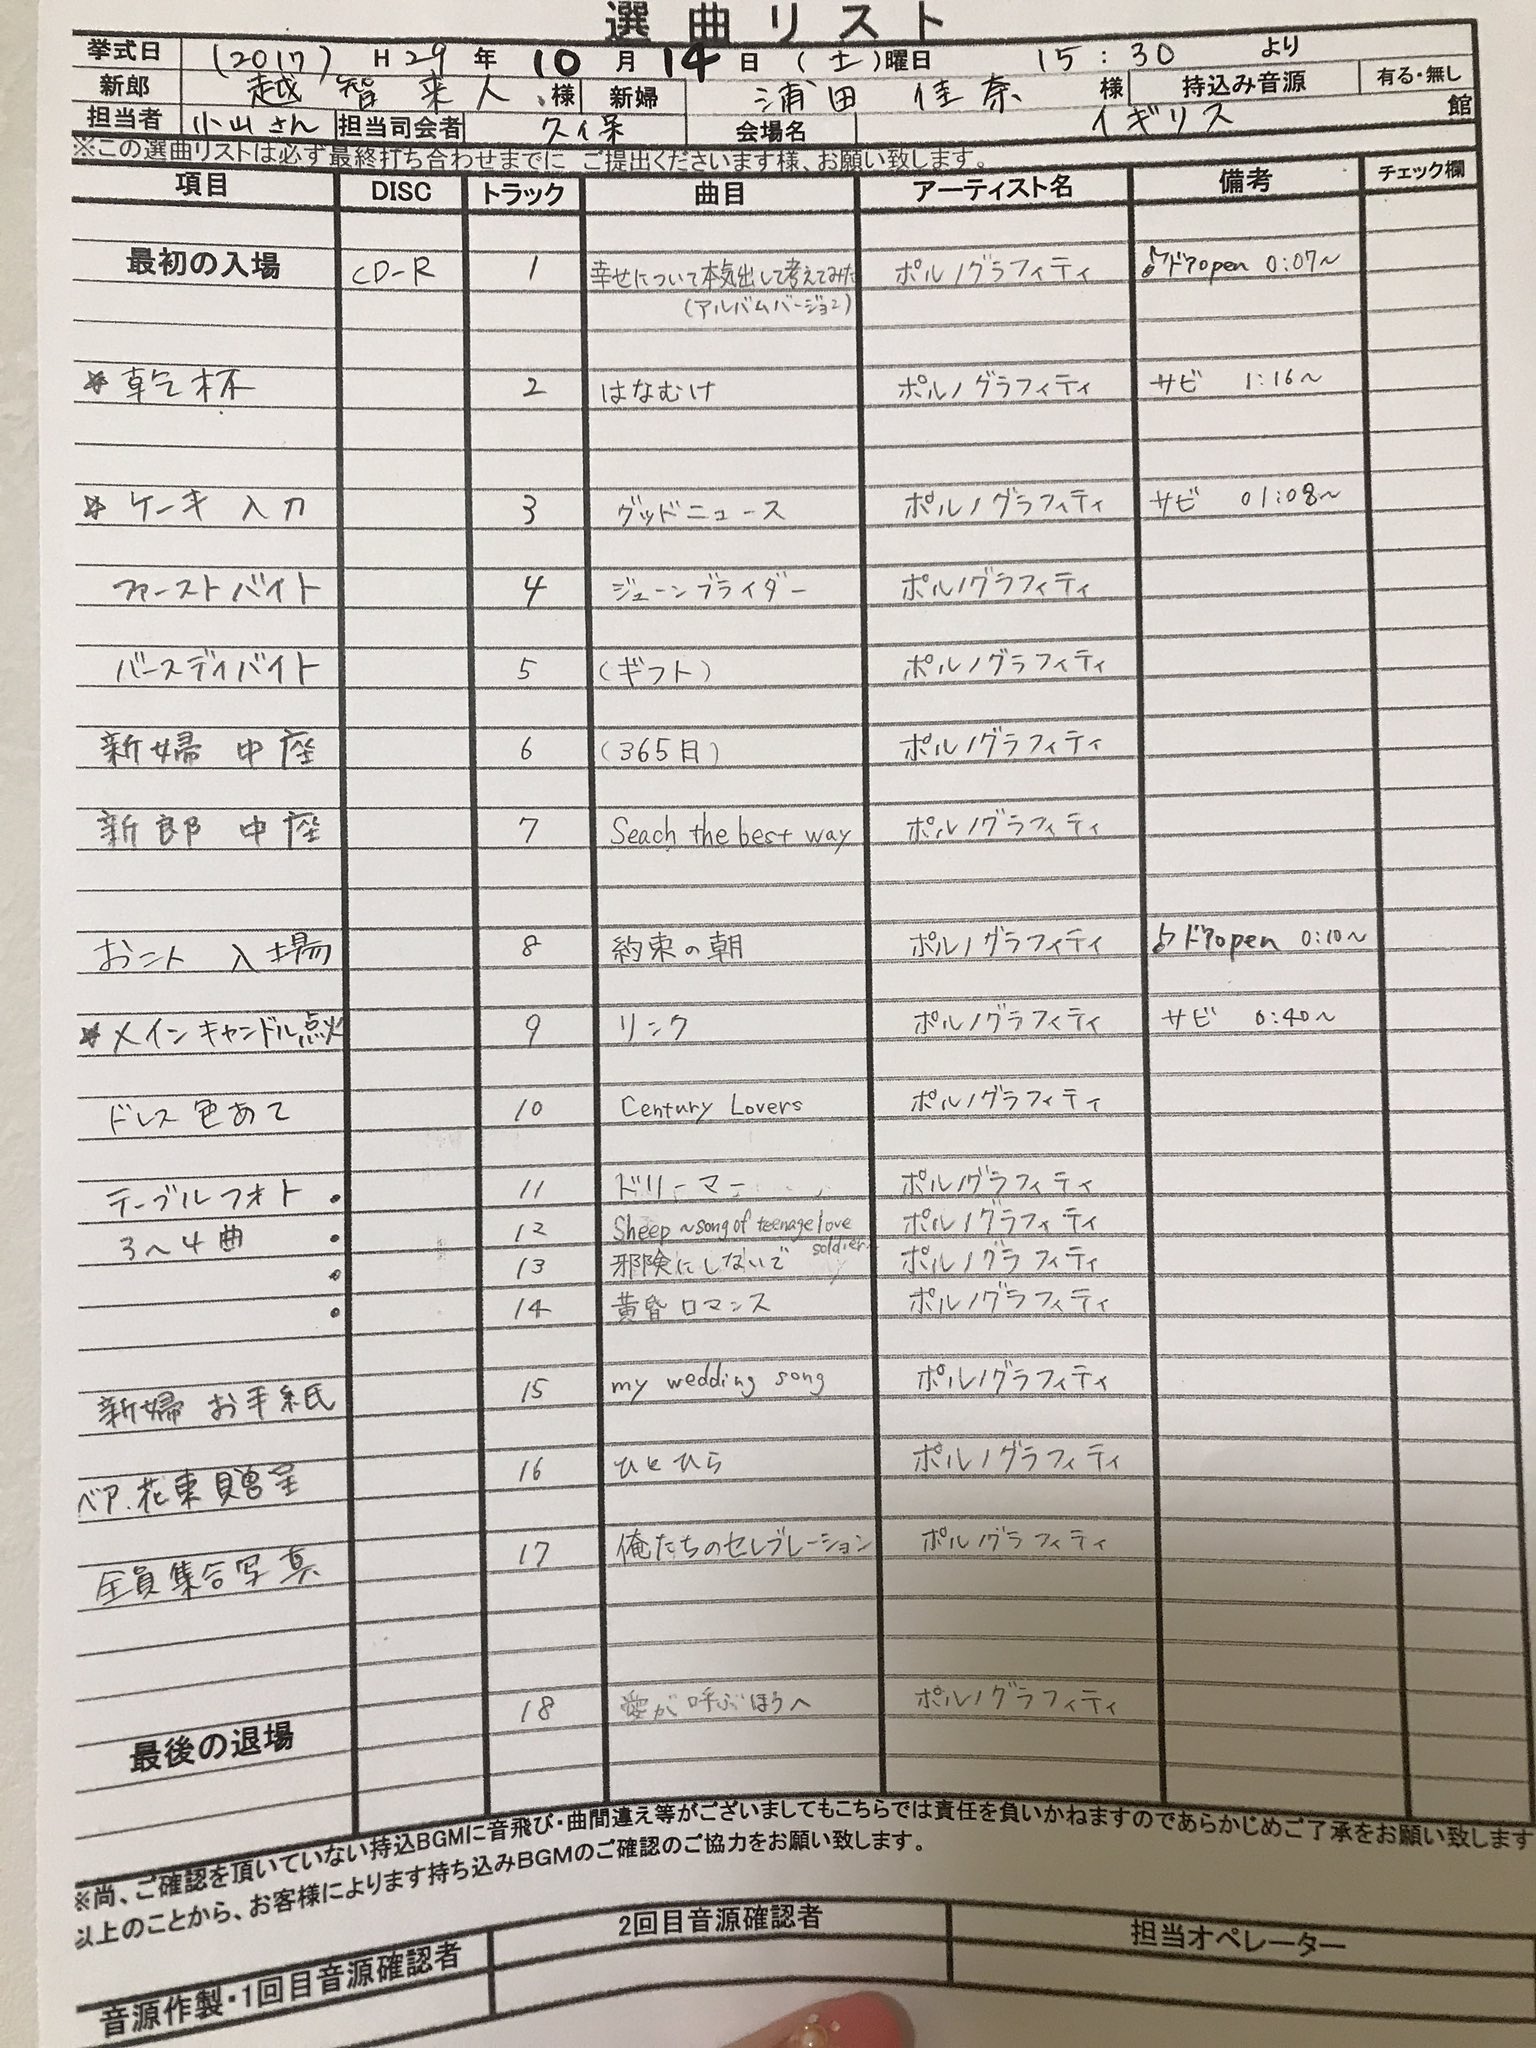 選曲リスト
挙式日 (2017) H29年 10月14日 (土)曜日 15:30 より
新郎 越智 来人 様 新婦 浦田 佳奈 様 持込み音源 有る・無し
担当者 小山さん 担当司会者 久保 会場名 イギリス 館
※この選曲リストは必ず最終打ち合わせまでに ご提出くださいます様、お願い致します。
項目 DISC トラック 曲目 アーティスト名 備考 チェック欄
最初の入場 CD-R 1 幸せについて本気出して考えてみた ポルノグラフィティ ♪ドアopen 0:07~
(アルバムバージョン)
☆ 乾杯 2 はなむけ ポルノグラフィティ サビ 1:16~
☆ ケーキ 入刀 3 グッドニュース ポルノグラフィティ サビ 01:08~
ファーストバイト 4 ジューンブライダー ポルノグラフィティ
バースデイバイト 5 (ギフト) ポルノグラフィティ
新婦 中座 6 (365日) ポルノグラフィティ
新郎 中座 7 Seach the best way ポルノグラフィティ
お二人 入場 8 約束の朝 ポルノグラフィティ ♪ドアopen 0:10~
☆ メインキャンドル点火 9 リンク ポルノグラフィティ サビ 0:40~
ドレス色あて 10 Century Lovers ポルノグラフィティ
テーブルフォト • 11 ドリーマー ポルノグラフィティ
3~4曲 • 12 Sheep ~song of teenage love soldier~ ポルノグラフィティ
• 13 邪険にしないで ポルノグラフィティ
• 14 黄昏ロマンス ポルノグラフィティ
新婦 お手紙 15 my wedding song ポルノグラフィティ
ベア、花束贈呈 16 ひとひら ポルノグラフィティ
全員集合写真 17 俺たちのセレブレーション ポルノグラフィティ
最後の退場 18 愛が呼ぶほうへ ポルノグラフィティ
※尚、ご確認を頂いていない持込BGMに音飛び・曲間違え等がございましてもこちらでは責任を負いかねますのであらかじめご了承をお願い致します
以上のことから、お客様によります持ち込みBGMのご確認のご協力をお願い致します。
音源作製・1回目音源確認者 2回目音源確認者 担当オペレーター